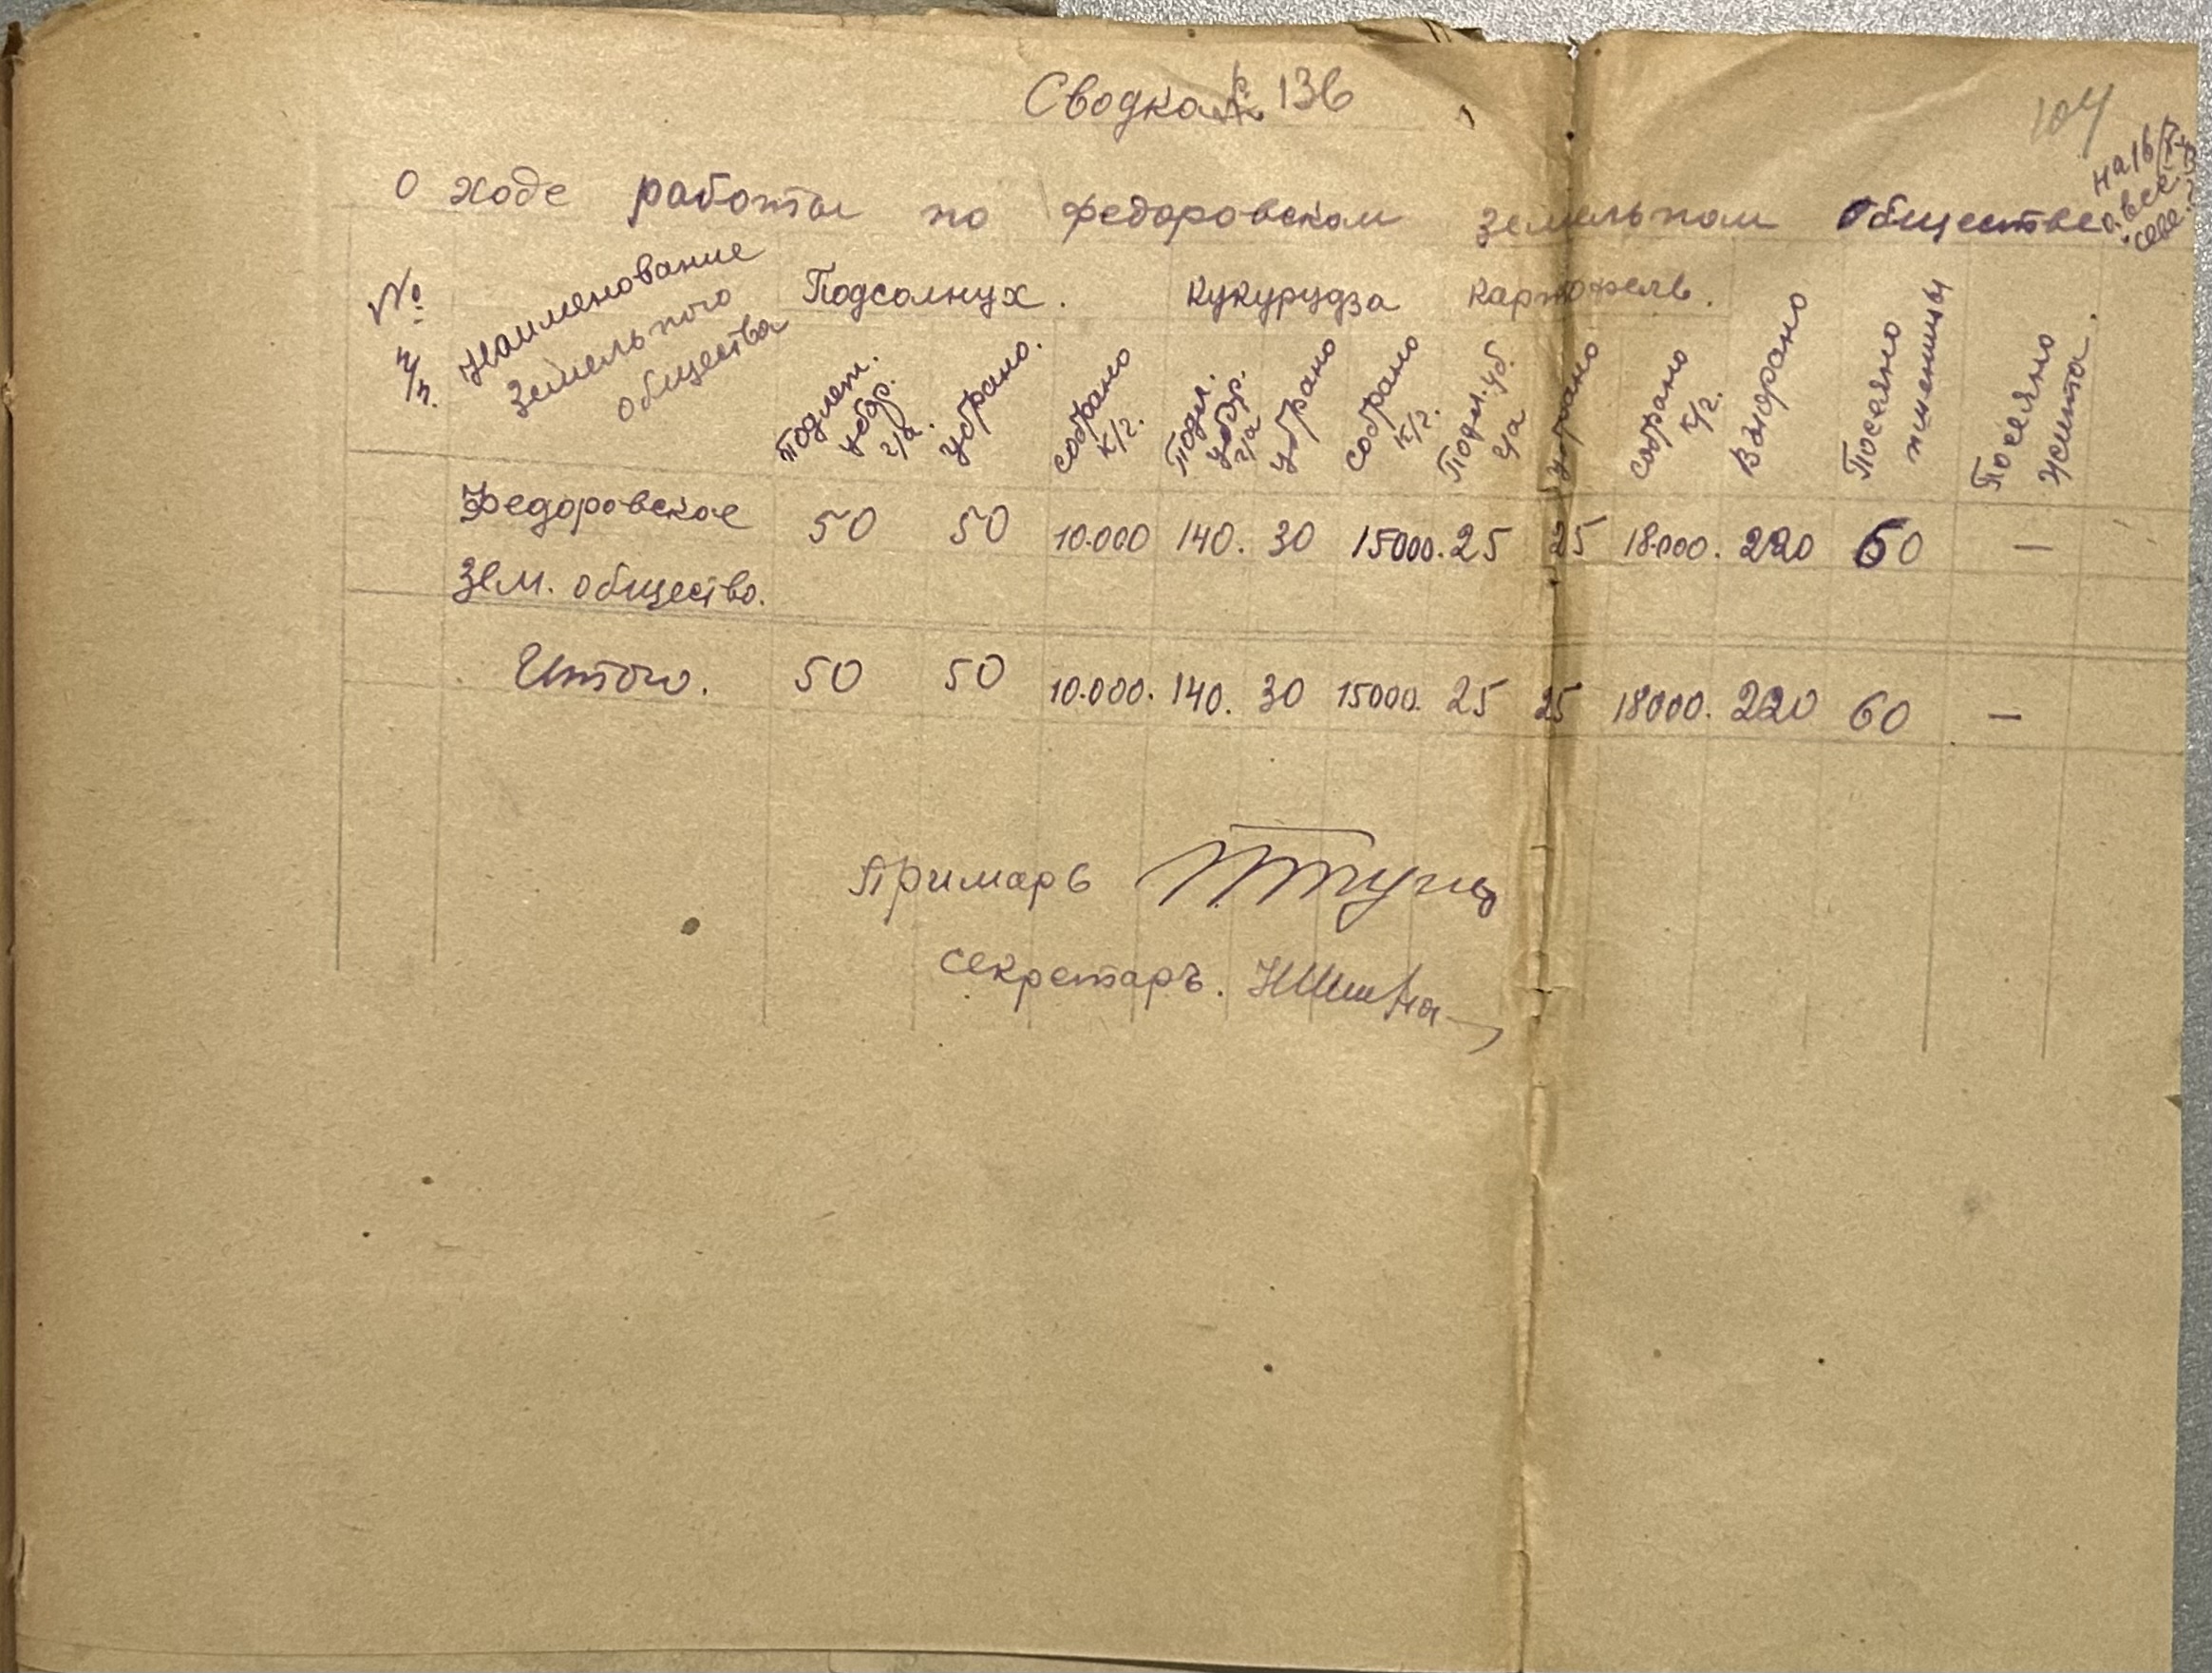 Сводка № 136
104
О ходе работы по федоровском земельном обществе
на 16
№ п/п. Наименование земельного общества Подсолнух. Кукурудза картофель. Взорано Посеяно пшеницы Посеяно жита.
Подлеж. убор. г/а. убрано. собрано к/г. Подл. убор. г/а убрано собрано к/г. Подл. уб. г/а убрано собрано к/г.
Федоровское 50 50 10.000 140. 30 15000. 25 25 18.000. 220 60 —
Зем. общество.
Итого. 50 50 10.000. 140. 30 15000. 25 25 18000. 220 60 —
Примарь
секретарь.